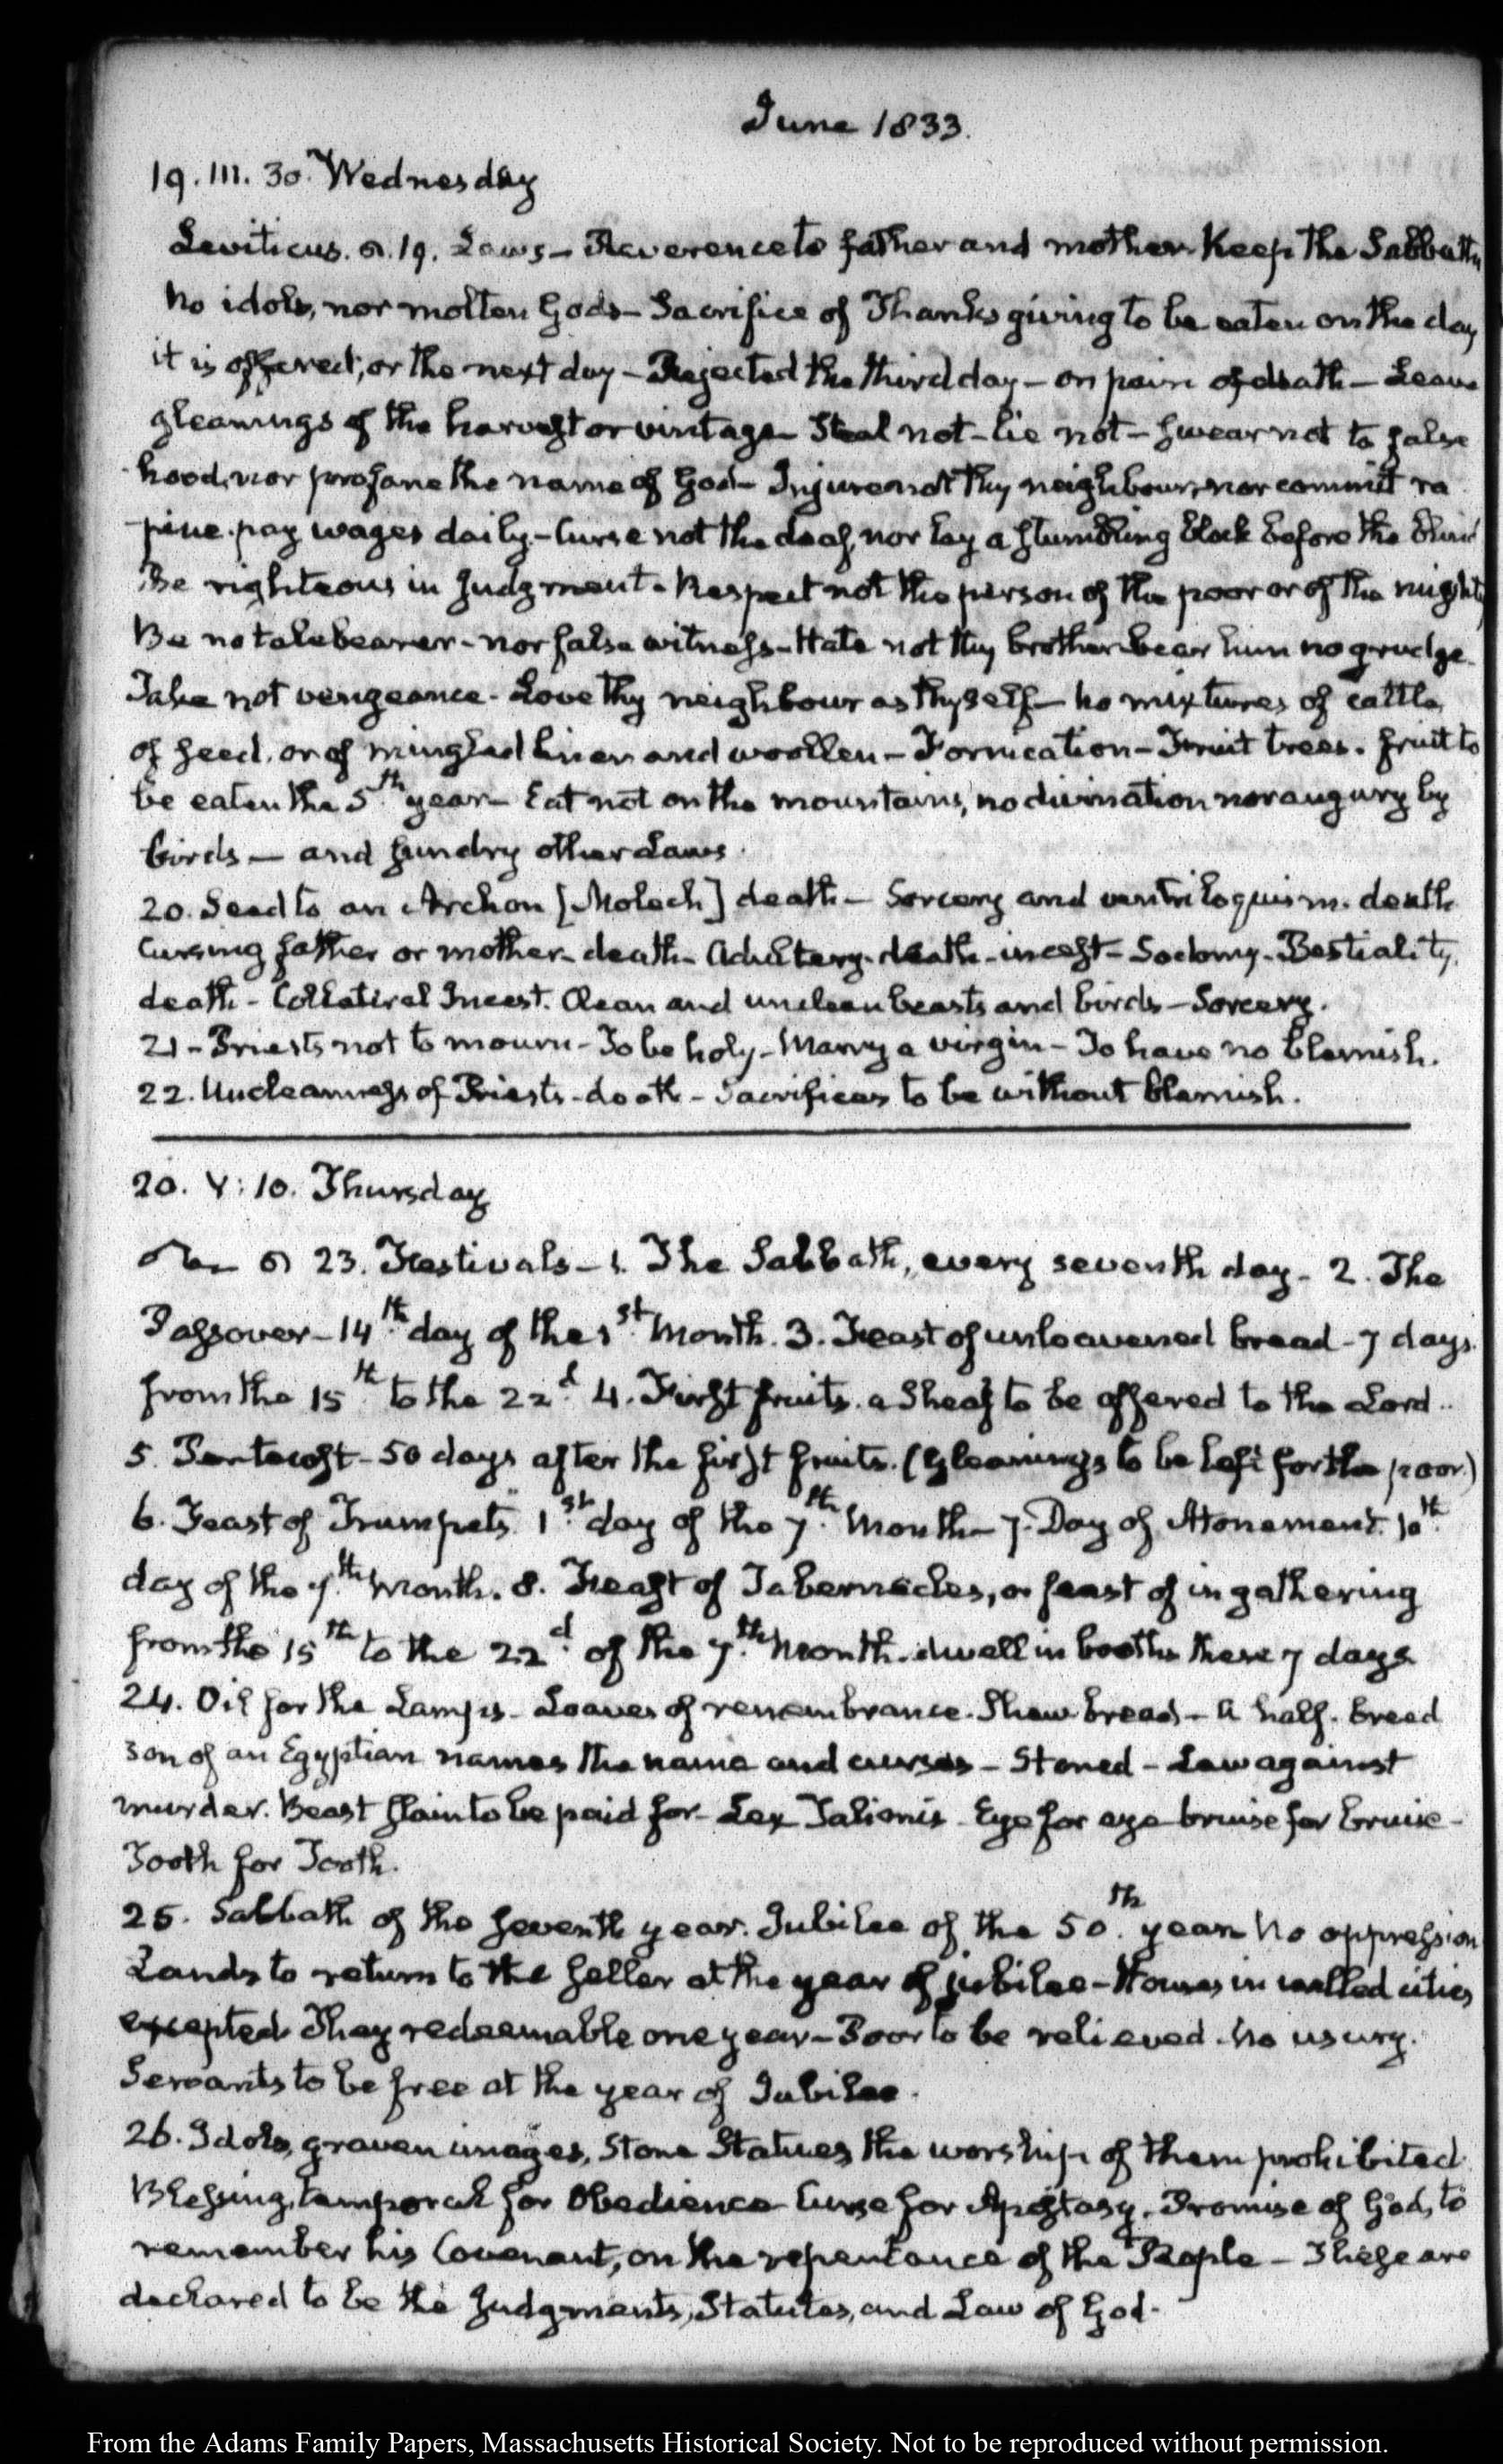 June 1833.
19. III. 30. Wednesday
Leviticus. 19. Laws – Reverence to father and mother. Keep the Sabbath
No idols, nor molten Gods – Sacrifice of Thanksgiving to be eaten on the day
it is offered, or the next day – Rejected the third day – on pain of death – Leave
gleanings of the harvest or vintage – Steal not – lie not – swear not to false
hood, nor profane the name of God – Injure not thy neighbour, nor commit ra
pine. pay wages daily. – Curse not the deaf, nor lay a stumbling block before the blind
Be righteous in judgment. Respect not the person of the poor or of the mighty
Be no talebearer – nor false witness – Hate not thy brother bear him no grudge.
Take not vengeance. Love thy neighbour as thyself – no mixtures of cattle,
of seed, or of mingled linen and woollen – Fornication – Fruit trees. fruit to
be eaten the 5th year – Eat not on the mountains, no divination nor augury by
birds — and sundry other Laws.
20. Seed to an Archon [Moloch] death – Sorcery and ventriloquism. death
Cursing father or mother – death – Adultery. death – incest – Sodomy – Bestiality.
death – Collateral Incest. Clean and unclean beasts and birds – Sorcery.
21 – Priests not to mourn – To be holy – Marry a virgin – To have no blemish.
22. Uncleanness of Priests – death – Sacrifices to be without blemish.
20. V: 10. Thursday
23. Festivals – 1. The Sabbath, every seventh day – 2. The
Passover – 14th day of the 1st Month. 3. Feast of unleavened bread – 7 days.
from the 15th to the 22d 4. First fruits. a Sheaf to be offered to the Lord..
5. Pentecost – 50 days after the first fruits. (Gleanings to be left for the poor.)
6. Feast of Trumpets 1st day of the 7th Month – 7. Day of Atonement. 10th
day of the 7th Month. 8. Feast of Tabernacles, or feast of in gathering
from the 15th to the 22d of the 7th Month. dwell in booths these 7 days
24. Oil for the Lamps – Loaves of remembrance. Shew bread – A half. breed
son of an Egyptian names the name and curses – Stoned – Law against
murder. Beast slain to be paid for – Lex Talionis – Eye for eye bruise for bruise –
Tooth for Tooth.
25. Sabbath of the seventh year. Jubilee of the 50th year. No oppression
Lands to return to the seller at the year of jubilee – Houses in walled cities
excepted. They redeemable one year – Poor to be relieved. No usury.
Servants to be free at the year of Jubilee.
26. Idols, graven images, Stone Statues, the worship of them prohibited
Blessing, temporal for Obedience Curse for Apostasy. Promise of God, to
remember his Covenant, on the repentance of the People – These are
declared to be the Judgments, Statutes, and Law of God.
From the Adams Family Papers, Massachusetts Historical Society. Not to be reproduced without permission.